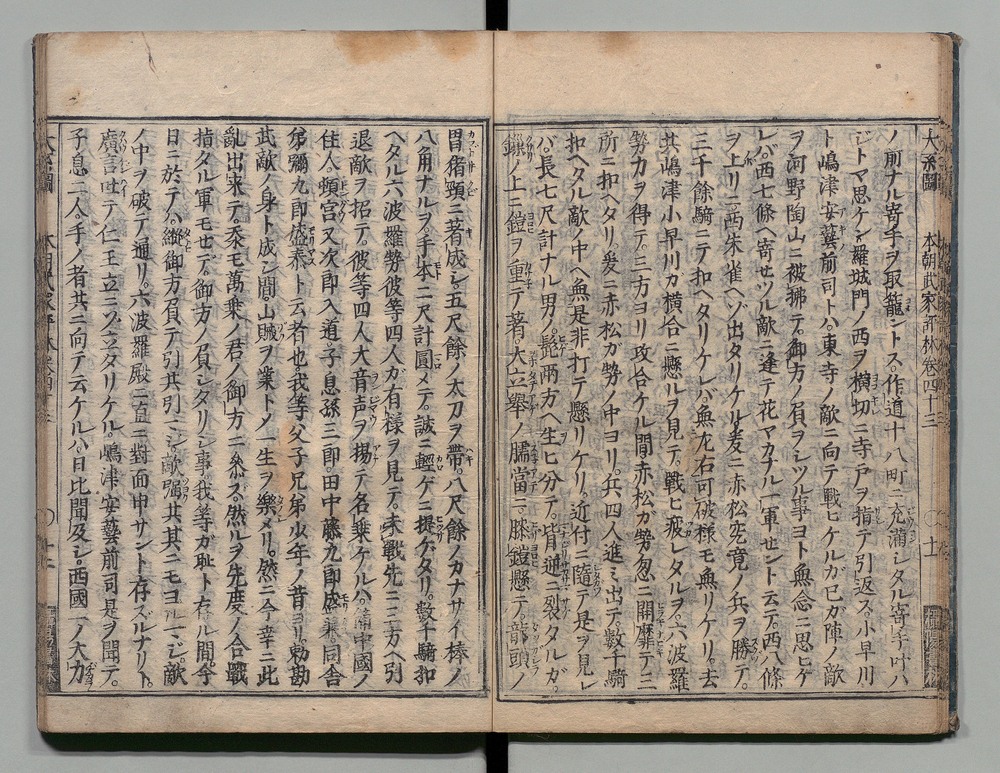 大系圖 本朝武家評林卷四十三 〇十一
ノ前ナル寄手ヲ取籠ントス。作道十八町ニ充滿シタル寄手叶ハ
ジトマ思ケン羅城門ノ西ヲ横切ニ寺戸ヲ指テ引返ス。小早川
ト嶋津安藝前司トハ。東寺ノ敵ニ向テ戰ヒケルカ己ガ陣ノ敵
ヲ河野陶山ニ被拂テ。御方ノ負ヲシツル事ヨト無念ニ思ヒケ
レバ。西七條ヘ寄セツル敵ニ逢テ花マカナル一軍セント云テ。西八條
ヲ上リニ西朱雀ヘゾ出タリケル。爰ニ赤松究竟ノ兵ヲ勝テ。
三千餘騎ニテ扣ヘタリケレバ。無左右可破樣モ無リケリ。去
共嶋津小早川カ横合ニ懸ルヲ見テ。戰ヒ疲レタルヲ。六波羅
勢力ヲ得テ。三方ヨリ攻合ケル間赤松カ勢忽ニ開靡テ三
所ニ扣ヘタリ。爰ニ赤松ガ勢ノ中ヨリ。兵四人進ミ出テ。數千騎
扣ヘタル敵ノ中ヘ無是非打テ懸リケリ。近付ニ隨テ是ヲ見レ
バ。長七尺計ナル男ノ。髭兩方ヘ生ヒ分テ。眥逆ニ裂タルガ。
鎖ノ上ニ鎧ヲ重テ著。大立擧ノ臑當ニ。膝鎧懸テ。龍頭ノ
冑猪頸ニ著成シ。五尺餘ノ太刀ヲ帶。八尺餘ノカナサイ棒ノ
八角ナルヲ。手本二尺計圓メテ。誠ニ輕ゲニ提ゲタリ。數千騎扣
ヘタル六波羅勢彼等四人カ有樣ヲ見テ。未戰先ニ三方ヘ引
退。敵ヲ招テ。彼等四人大音声ヲ揚テ名乘ケルハ。備中國ノ
住人。頓宮又次郎入道。子息孫三郎。田中藤九郎盛兼。同舍
弟彌九郎盛泰ト云者也。我等父子兄弟少年ノ昔ヨリ。勅勘
武敵ノ身ト成シ間。山賊ヲ業トメ一生ヲ樂メリ。然ニ今幸ニ此
亂出來テ。忝モ萬乘ノ君ノ御方ニ參ズ。然ルヲ先度ノ合戰
指タル軍モセデ。御方ノ負シタリシ事我等ガ恥ト存ル間。今
日ニ於テハ。縱御方負テ引共引マジ。敵強共其ニモヨルマジ。敵
ノ中ヲ破テ通リ。六波羅殿ニ直ニ對面申サント存ズルナリト。
廣言吐テ。仁王立ニゾ立タリケル。嶋津安藝前司是ヲ聞テ。
子息二人。手ノ者共ニ向テ云ケルハ。日比聞及シ。西國一ノ大力
大系圖 本朝武家評林卷四十三 〇十二